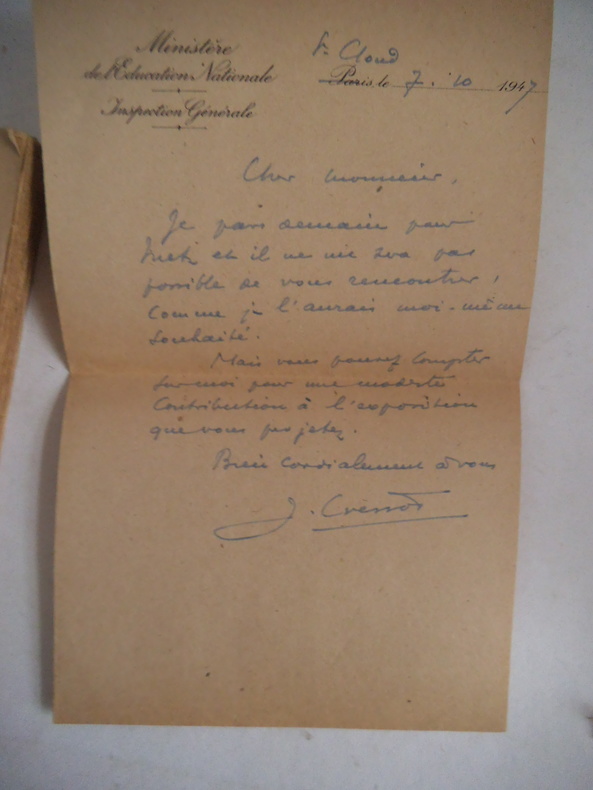 Ministère
de l'Education Nationale
Inspection Générale
St Cloud
Paris le 7. 10 1947
Cher monsieur,
Je pars demain pour
Metz et il ne me sera pas
possible de vous rencontrer,
comme je l'aurais moi-même
souhaité.
Mais vous pouvez compter
sur moi pour une modeste
contribution à l'exposition
que vous projetez.
Bien cordialement à vous
J. Cressot